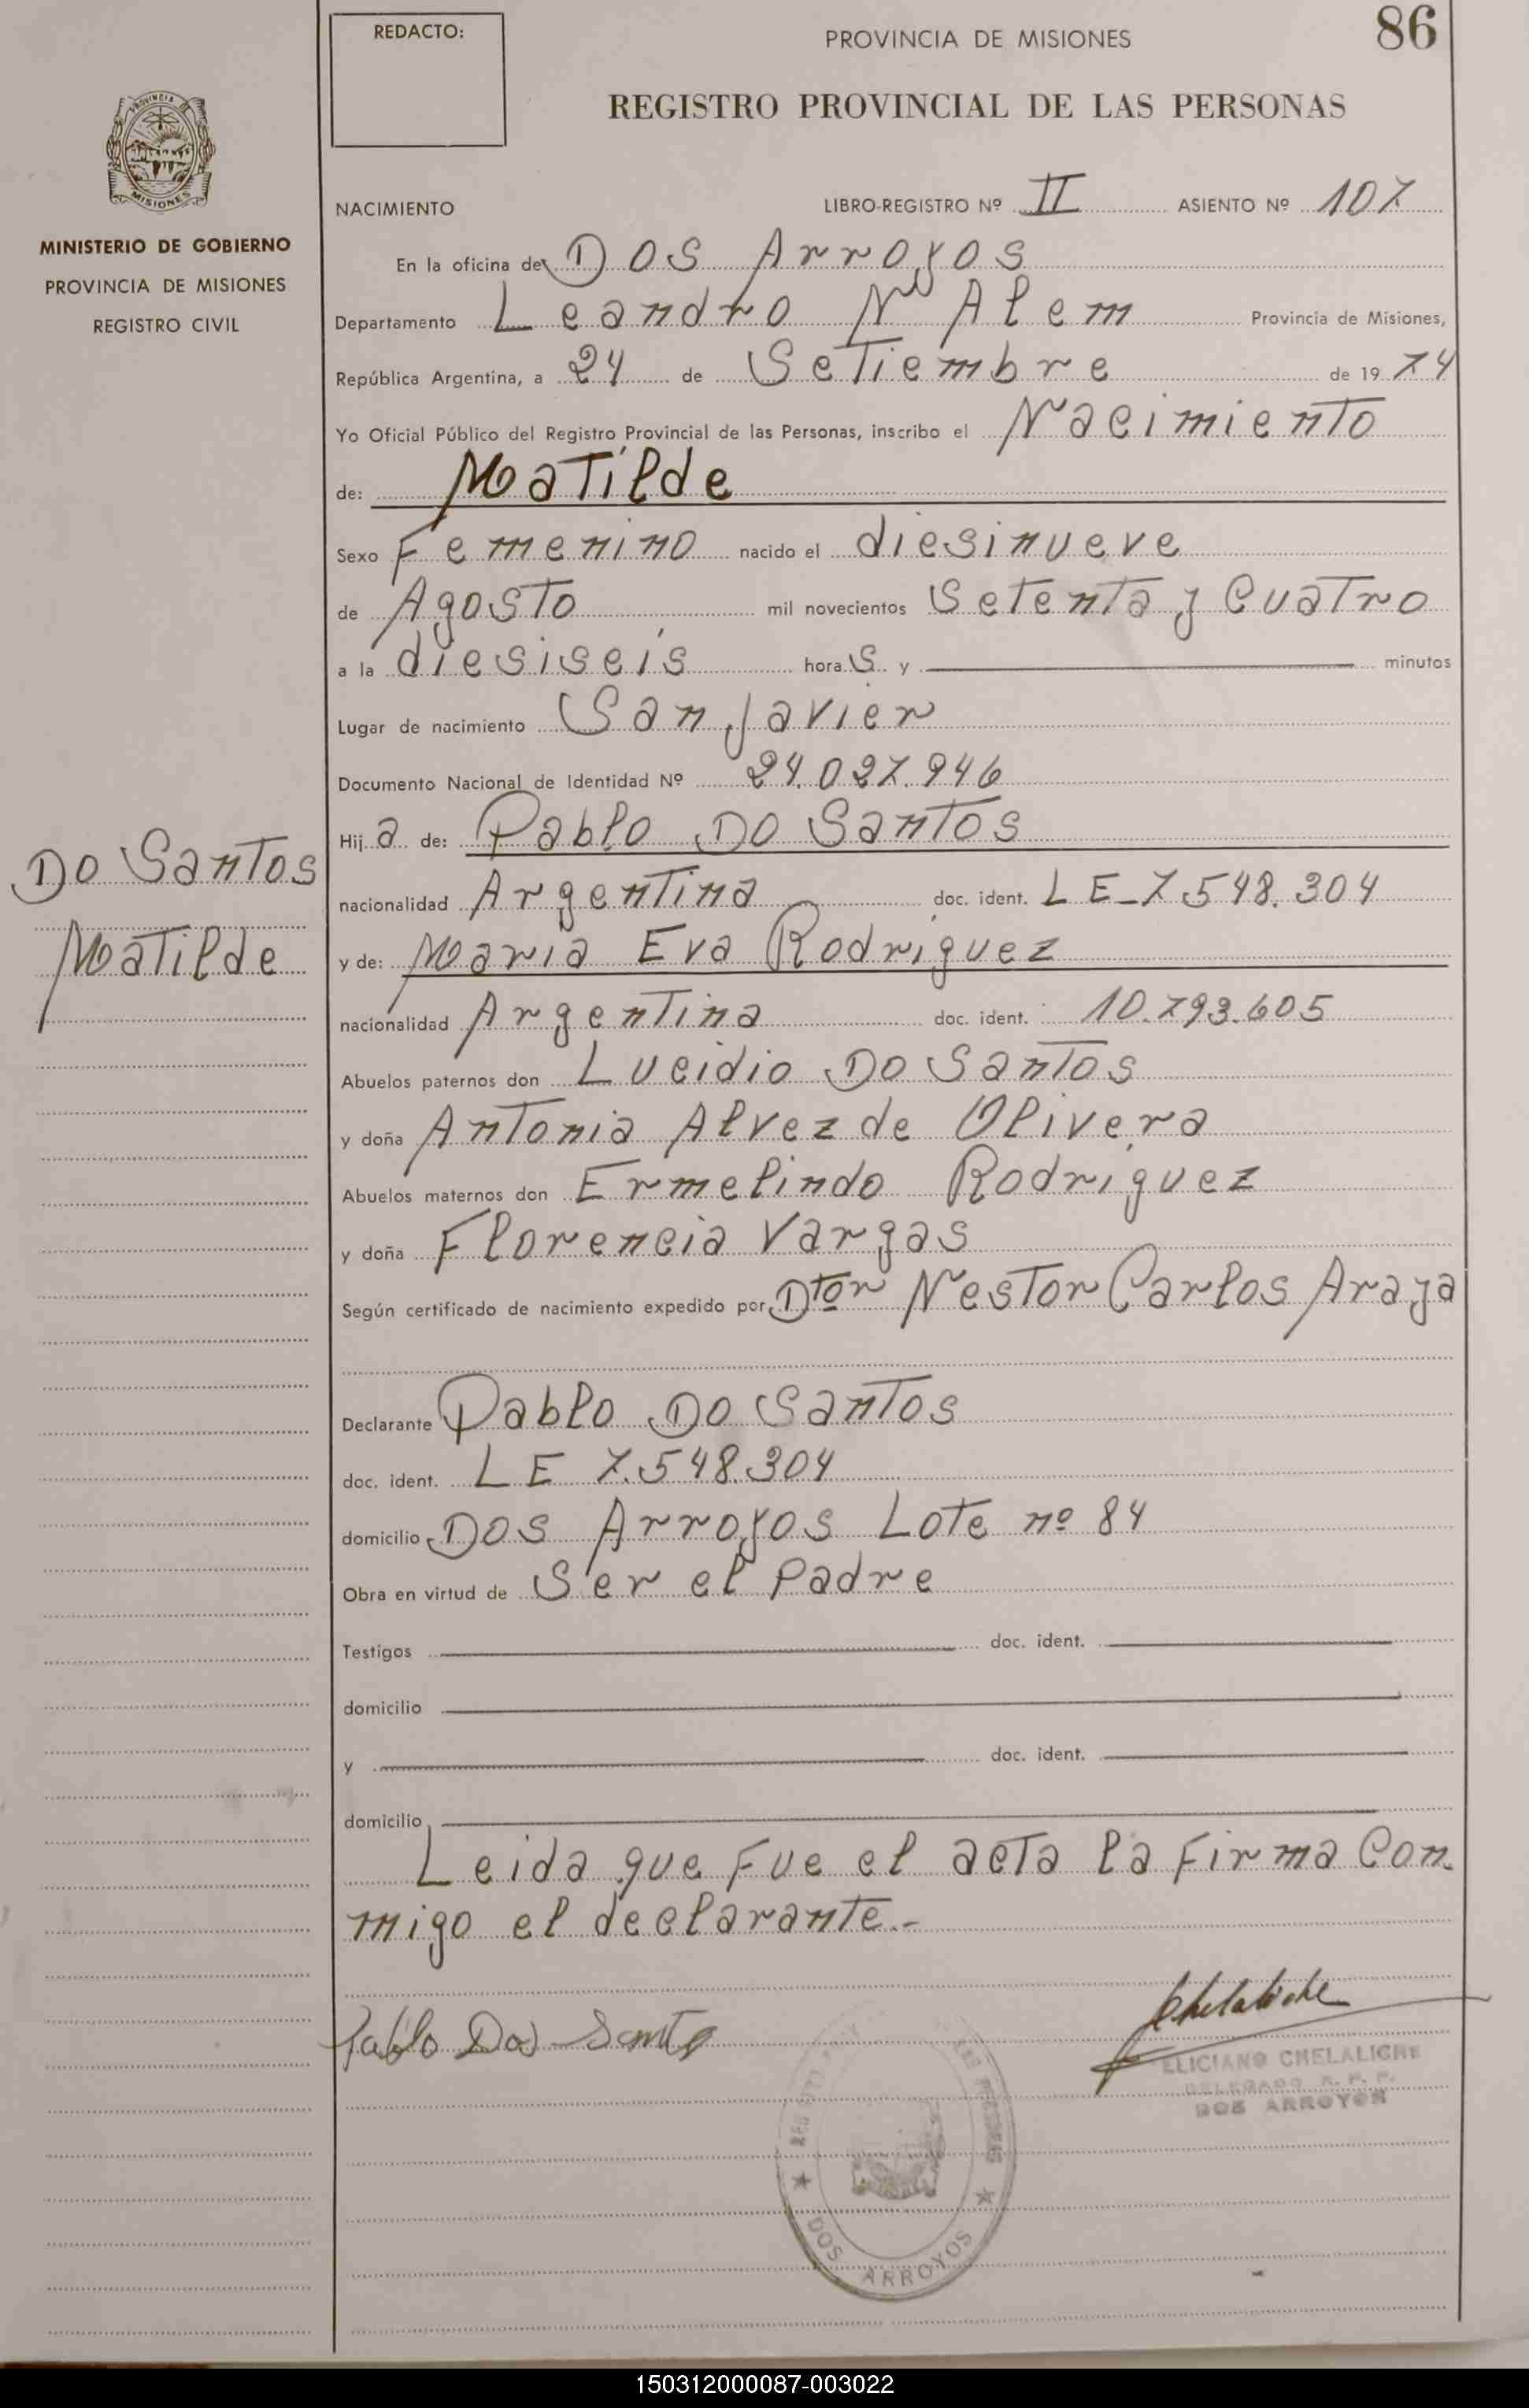 86
REDACTO:
PROVINCIA DE MISIONES
REGISTRO PROVINCIAL DE LAS PERSONAS
MISIONES
MINISTERIO DE GOBIERNO
PROVINCIA DE MISIONES
REGISTRO CIVIL
NACIMIENTO LIBRO-REGISTRO Nº II ASIENTO Nº 107
En la oficina de DOS Arroyos
Departamento Leandro N Alem Provincia de Misiones,
República Argentina, a 24 de Setiembre de 1974
Yo Oficial Público del Registro Provincial de las Personas, inscribo el Nacimiento
de: Matilde
Sexo Femenino nacido el diesinueve
de Agosto mil novecientos Setenta y Cuatro
a la diesiseis horas y minutos
Lugar de nacimiento San Javier
Documento Nacional de Identidad Nº 24.027.946
Hija de: Pablo DO Santos
DO Santos
Matilde
nacionalidad Argentina doc. ident. LE-7.548.304
y de: Maria Eva Rodriguez
nacionalidad Argentina doc. ident. 10.793.605
Abuelos paternos don Lucidio DO Santos
y doña Antonia Alvez de Olivera
Abuelos maternos don Ermelindo Rodriguez
y doña Florencia Vargas
Según certificado de nacimiento expedido por Dtor Nestor Carlos Araya
Declarante Pablo DO Santos
doc. ident. LE 7.548.304
domicilio DOS Arroyos Lote nº 84
Obra en virtud de Ser el Padre
Testigos doc. ident.
domicilio
y doc. ident.
domicilio
Leida que Fue el acta la Firma Con
migo el declarante.-
Pablo Do Santos
Chelaliche
ELICIANO CHELALICHE
DELEGADO R. P. P.
DOS ARROYOS
DOS ARROYOS
150312000087-003022